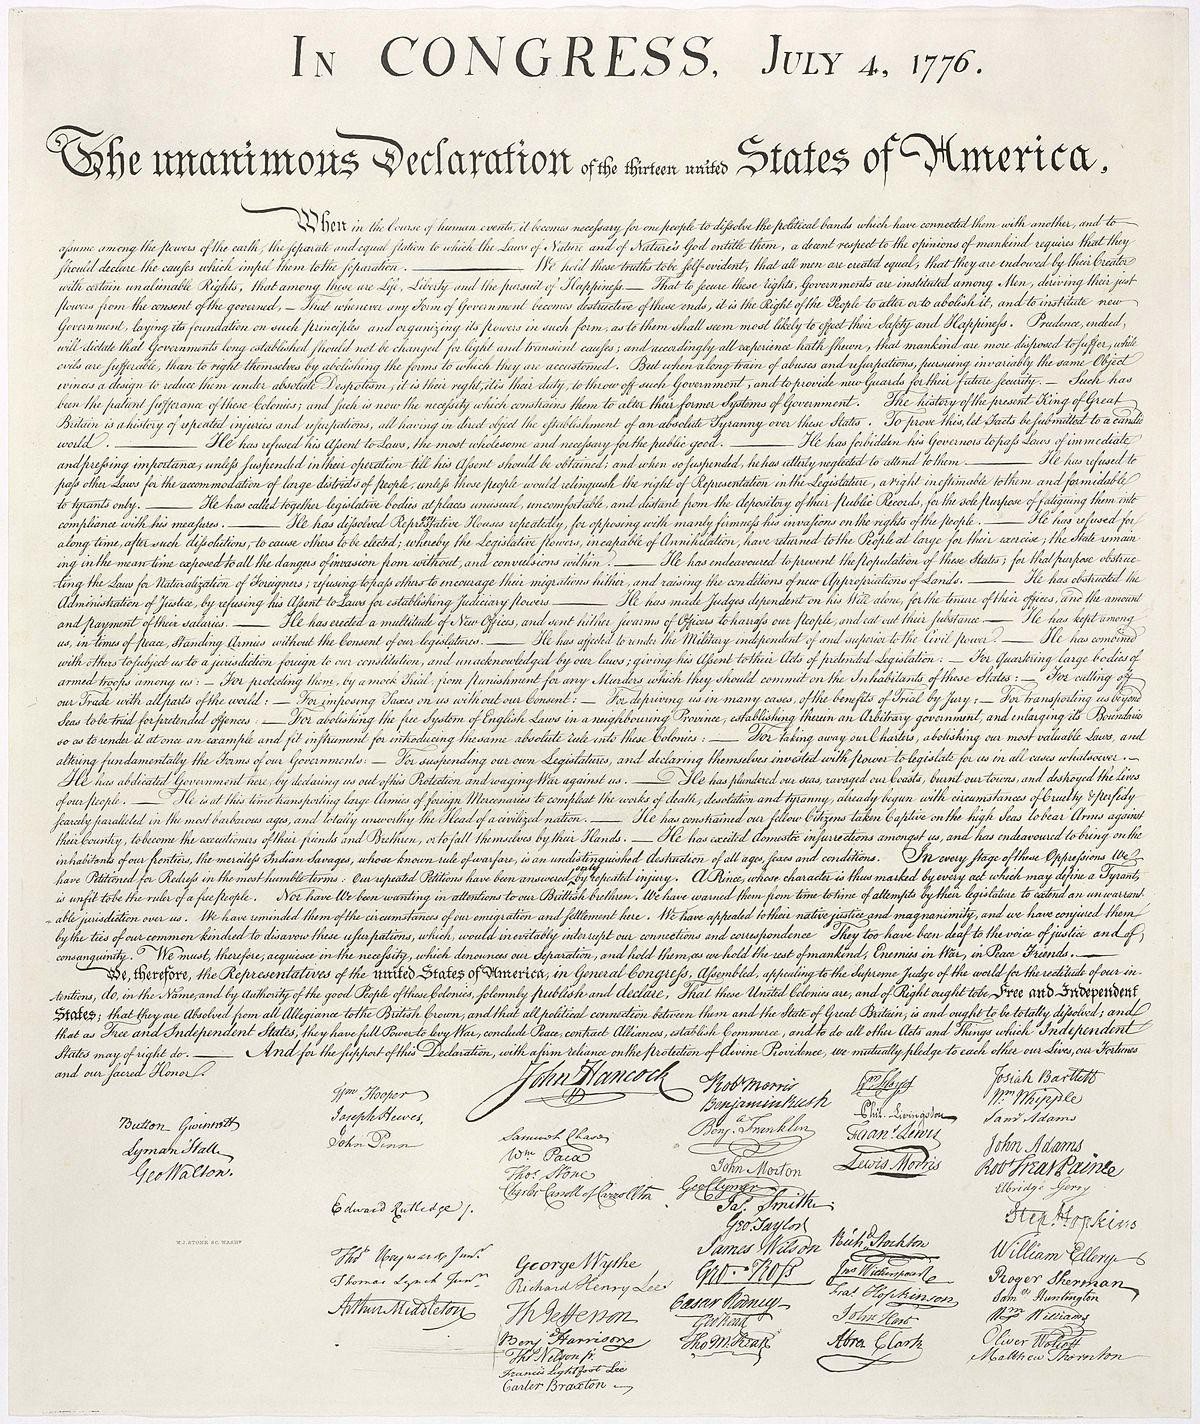 In CONGRESS, July 4, 1776.
The unanimous Declaration of the thirteen united States of America,
When in the Course of human events, it becomes necessary for one people to dissolve the political bands which have connected them with another, and to
assume among the powers of the earth, the separate and equal station to which the Laws of Nature and of Nature's God entitle them, a decent respect to the opinions of mankind requires that they
should declare the causes which impel them to the separation. — We hold these truths to be self-evident, that all men are created equal, that they are endowed by their Creator
with certain unalienable Rights, that among these are Life, Liberty and the pursuit of Happiness.— That to secure these rights, Governments are instituted among Men, deriving their just
powers from the consent of the governed, — That whenever any Form of Government becomes destructive of these ends, it is the Right of the People to alter or to abolish it, and to institute new
Government, laying its foundation on such principles and organizing its powers in such form, as to them shall seem most likely to effect their Safety and Happiness. Prudence, indeed,
will dictate that Governments long established should not be changed for light and transient causes; and accordingly all experience hath shewn, that mankind are more disposed to suffer, while
evils are sufferable, than to right themselves by abolishing the forms to which they are accustomed. But when a long train of abuses and usurpations, pursuing invariably the same Object
evinces a design to reduce them under absolute Despotism, it is their right, it is their duty, to throw off such Government, and to provide new Guards for their future security. — Such has
been the patient sufferance of these Colonies; and such is now the necessity which constrains them to alter their former Systems of Government. The history of the present King of Great
Britain is a history of repeated injuries and usurpations, all having in direct object the establishment of an absolute Tyranny over these States. To prove this, let Facts be submitted to a candid
world. — He has refused his Assent to Laws, the most wholesome and necessary for the public good. — He has forbidden his Governors to pass Laws of immediate
and pressing importance, unless suspended in their operation till his Assent should be obtained; and when so suspended, he has utterly neglected to attend to them. — He has refused to
pass other Laws for the accommodation of large districts of people, unless those people would relinquish the right of Representation in the Legislature, a right inestimable to them and formidable
to tyrants only. — He has called together legislative bodies at places unusual, uncomfortable, and distant from the depository of their Public Records, for the sole purpose of fatiguing them into
compliance with his measures. — He has dissolved Representative Houses repeatedly, for opposing with manly firmness his invasions on the rights of the people. — He has refused for
a long time, after such dissolutions, to cause others to be elected; whereby the Legislative powers, incapable of Annihilation, have returned to the People at large for their exercise; the State remain
ing in the mean time exposed to all the dangers of invasion from without, and convulsions within. — He has endeavoured to prevent the population of these States; for that purpose obstruc-
ting the Laws for Naturalization of Foreigners; refusing to pass others to encourage their migrations hither, and raising the conditions of new Appropriations of Lands. — He has obstructed the
Administration of Justice, by refusing his Assent to Laws for establishing Judiciary powers — He has made Judges dependent on his Will alone, for the tenure of their offices, and the amount
and payment of their salaries. — He has erected a multitude of New Offices, and sent hither swarms of Officers to harrass our people, and eat out their substance — He has kept among
us, in times of peace, Standing Armies without the Consent of our legislatures. — He has affected to render the Military independent of and superior to the Civil power. — He has combined
with others to subject us to a jurisdiction foreign to our constitution, and unacknowledged by our laws; giving his Assent to their Acts of pretended Legislation: — For Quartering large bodies of
armed troops among us: — For protecting them, by a mock Trial, from punishment for any Murders which they should commit on the Inhabitants of these States: — For cutting off
our Trade with all parts of the world: — For imposing Taxes on us without our Consent: — For depriving us in many cases, of the benefits of Trial by Jury: — For transporting us beyond
Seas to be tried for pretended offences — For abolishing the free System of English Laws in a neighbouring Province, establishing therein an Arbitrary government, and enlarging its Boundaries
so as to render it at once an example and fit instrument for introducing the same absolute rule into these Colonies: — For taking away our Charters, abolishing our most valuable Laws, and
altering fundamentally the Forms of our Governments: — For suspending our own Legislatures, and declaring themselves invested with power to legislate for us in all cases whatsoever. —
He has abdicated Government here, by declaring us out of his Protection and waging War against us. — He has plundered our seas, ravaged our Coasts, burnt our towns, and destroyed the Lives
of our people. — He is at this time transporting large Armies of foreign Mercenaries to compleat the works of death, desolation and tyranny, already begun with circumstances of Cruelty & perfidy
scarcely paralleled in the most barbarous ages, and totally unworthy the Head of a civilized nation. — He has constrained our fellow Citizens taken Captive on the high Seas to bear Arms against
their Country, to become the executioners of their friends and Brethren, or to fall themselves by their Hands. — He has excited domestic insurrections amongst us, and has endeavoured to bring on the
inhabitants of our frontiers, the merciless Indian Savages, whose known rule of warfare, is an undistinguished destruction of all ages, sexes and conditions. In every stage of these Oppressions We
have Petitioned for Redress in the most humble terms: Our repeated Petitions have been answered only by repeated injury. A Prince, whose character is thus marked by every act which may define a Tyrant,
is unfit to be the ruler of a free people. Nor have We been wanting in attentions to our Brittish brethren. We have warned them from time to time of attempts by their legislature to extend an unwarrant-
able jurisdiction over us. We have reminded them of the circumstances of our emigration and settlement here. We have appealed to their native justice and magnanimity, and we have conjured them
by the ties of our common kindred to disavow these usurpations, which, would inevitably interrupt our connections and correspondence They too have been deaf to the voice of justice and of
consanguinity. We must, therefore, acquiesce in the necessity, which denounces our Separation, and hold them, as we hold the rest of mankind, Enemies in War, in Peace Friends. —
We, therefore, the Representatives of the united States of America, in General Congress, Assembled, appealing to the Supreme Judge of the world for the rectitude of our in-
tentions, do, in the Name, and by Authority of the good People of these Colonies, solemnly publish and declare, That these United Colonies are, and of Right ought to be Free and Independent
States; that they are Absolved from all Allegiance to the British Crown, and that all political connection between them and the State of Great Britain, is and ought to be totally dissolved; and
that as Free and Independent States, they have full Power to levy War, conclude Peace, contract Alliances, establish Commerce, and to do all other Acts and Things which Independent
States may of right do. — And for the support of this Declaration, with a firm reliance on the protection of divine Providence, we mutually pledge to each other our Lives, our Fortunes
and our sacred Honor.
Button Gwinnett
Lyman Hall
Geo Walton.
Wm Hooper
Joseph Hewes,
John Penn
Edward Rutledge /.
Thos Heyward Junr.
Thomas Lynch Junr.
Arthur Middleton
John Hancock
Samuel Chase
Wm Paca
Thos Stone
Charles Carroll of Carrollton
George Wythe
Richard Henry Lee
Th Jefferson
Benj Harrison
Thos Nelson jr.
Francis Lightfoot Lee
Carter Braxton
Robt Morris
Benjamin Rush
Benj. Franklin
John Morton
Geo Clymer
Jas. Smith
Geo. Taylor
James Wilson
Geo. Ross
Caesar Rodney
Geo Read
Tho M:Kean
Wm Floyd
Phil. Livingston
Frans. Lewis
Lewis Morris
Richd. Stockton
Jno Witherspoon
Fras. Hopkinson
John Hart
Abra Clark
Josiah Bartlett
Wm. Whipple
Saml Adams
John Adams
Robt Treat Paine
Elbridge Gerry
Step. Hopkins
William Ellery
Roger Sherman
Saml Huntington
Wm Williams
Oliver Wolcott
Matthew Thornton
W. J. STONE SC. WASHN